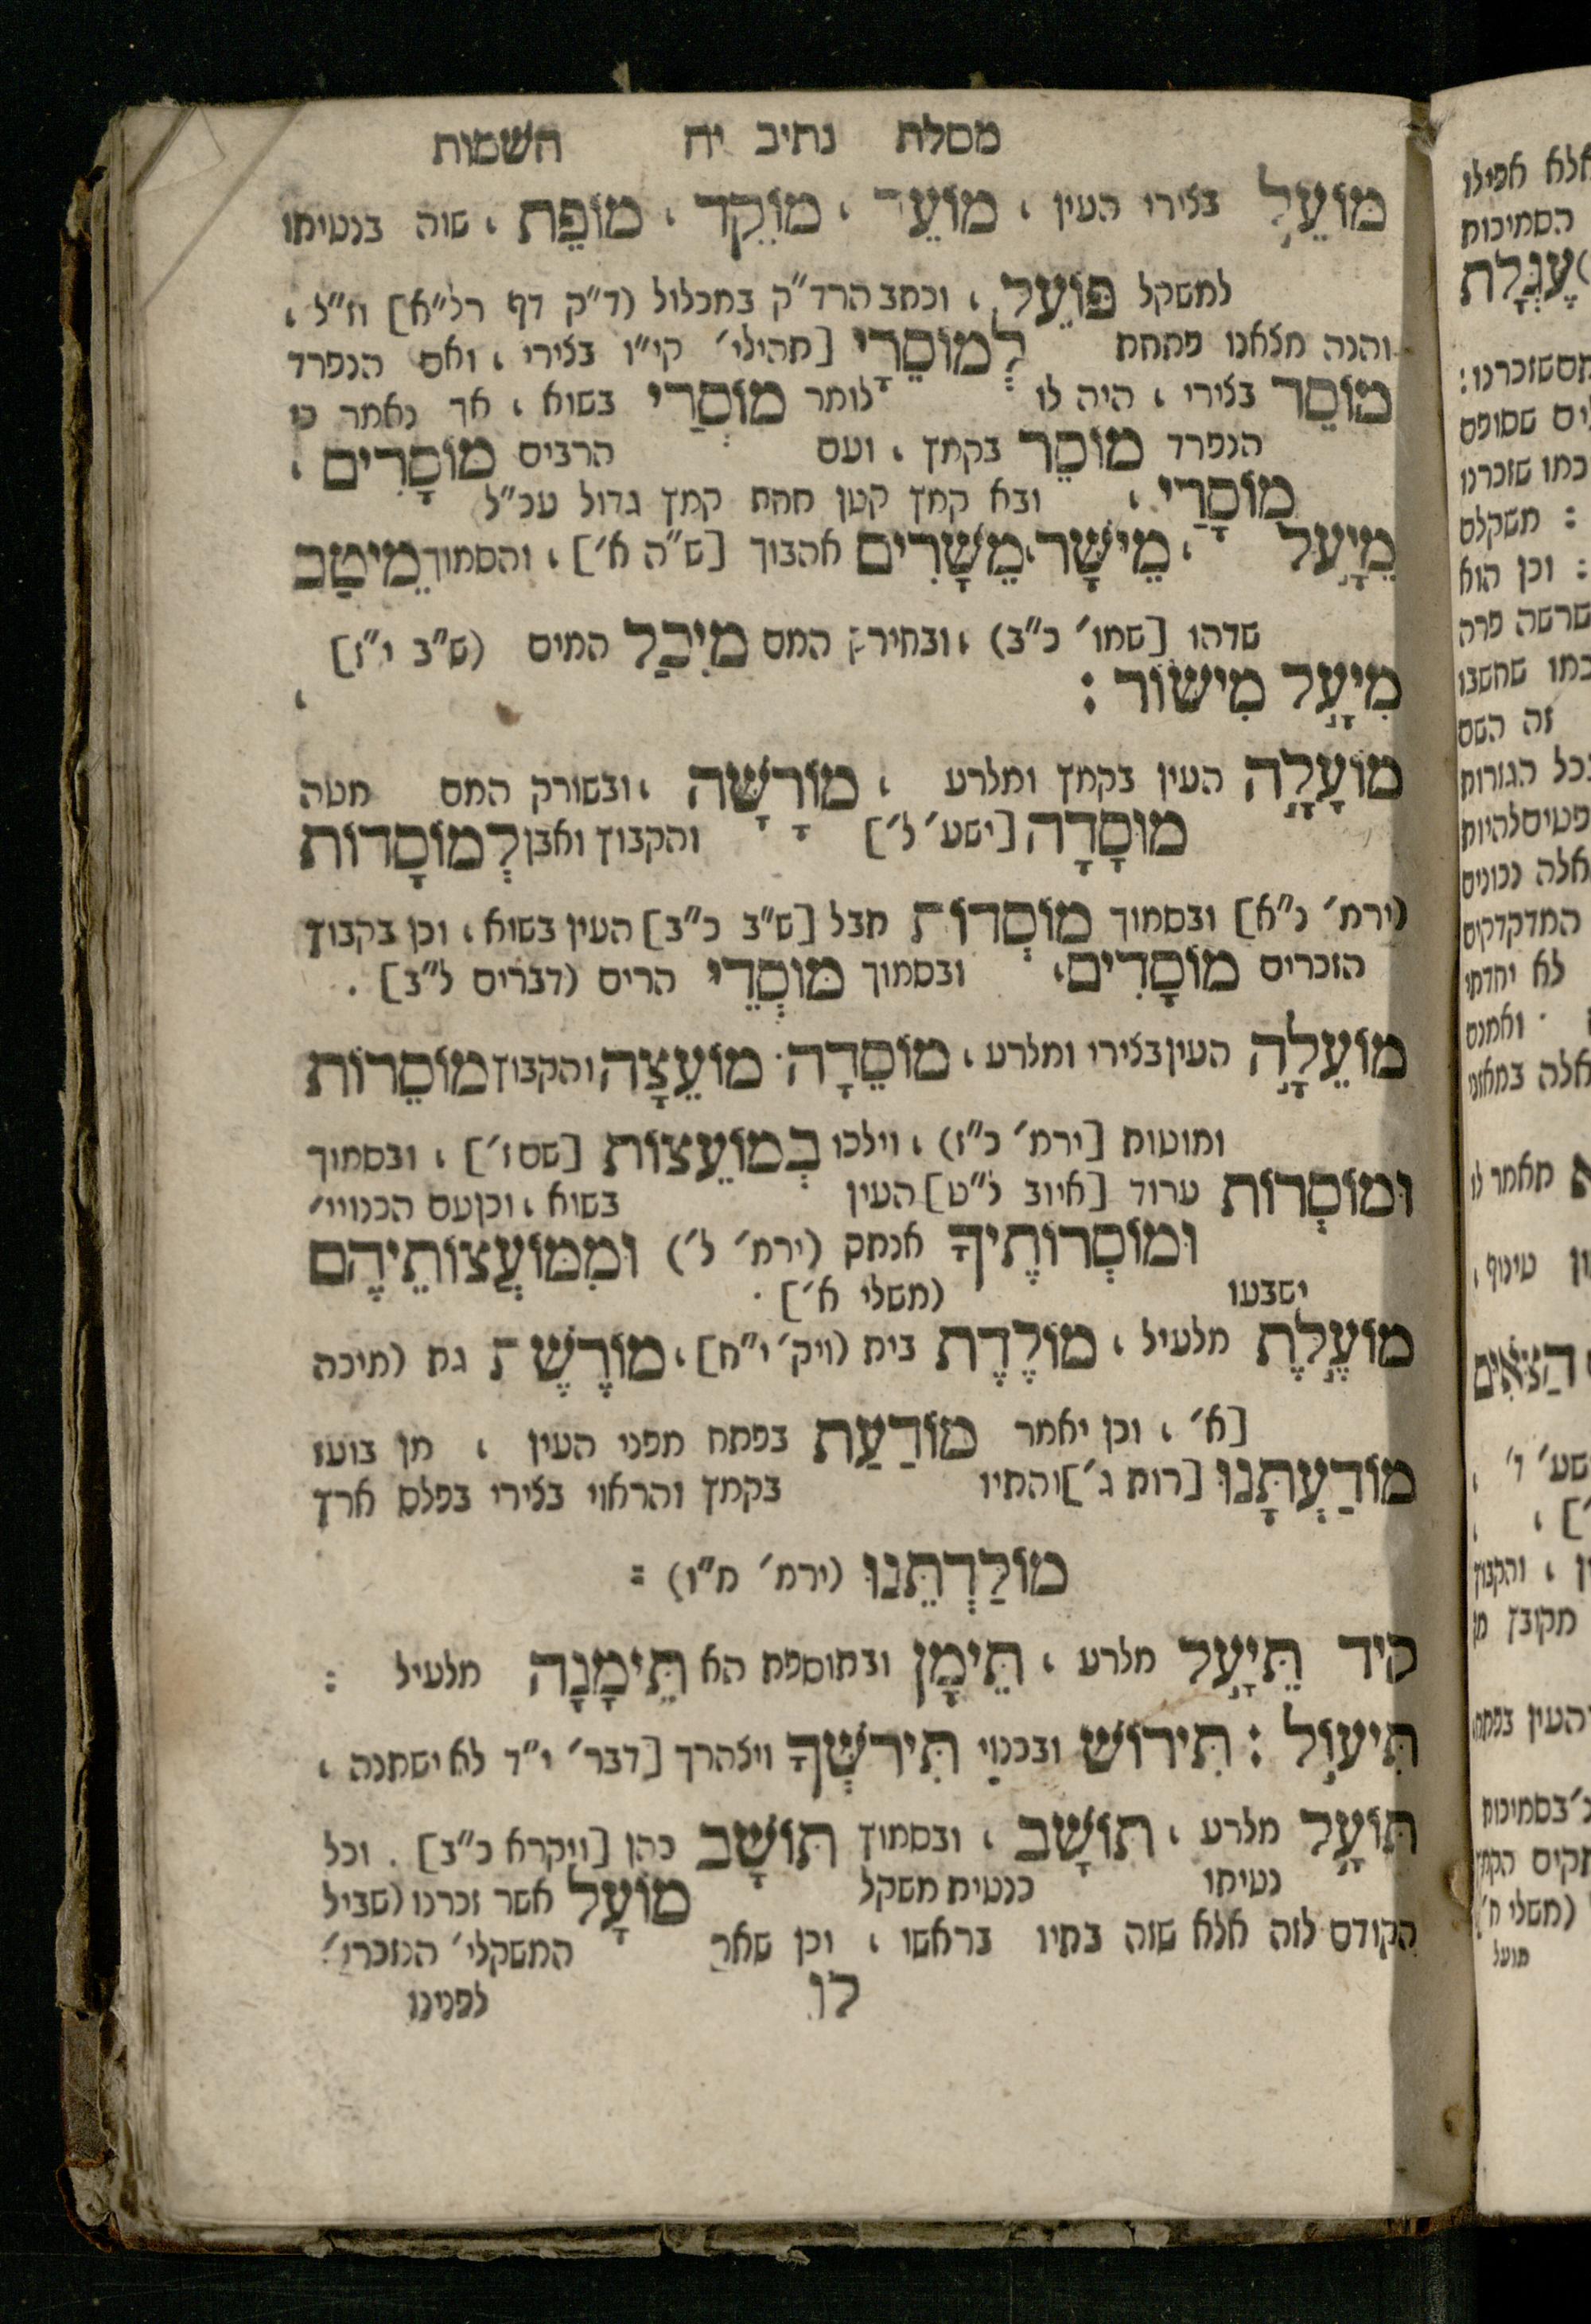 מסלת נתיב יח השמות
מוֹעֵל בצירי העין , מוֹעֵד , מוֹקֵד , מוֹפֵת , שוה בנטיתו
למשקל פּוֹעֵל , וכתב הרד״ק במכלול (ד״ק דף רל״א] וז״ל ,
והנה מצאנו פתחת לְמוֹסֵרָי [תהילי׳ קי״ו בצירי , ואם הנפרד
מוֹסֵר בצירי , היה לו לומר מוֹסְרַי בשוא , אך נאמר כי
הנפרד מוֹסָר בקמץ , ועם הרבים מוֹסָרִים ,
מוֹסָרַי , ובא קמץ קטן תחת קמץ גדול עכ״ל
מֵיעָל , מֵישָׁר , מֵשָׁרִים אהבוך [ש״ה א׳] , והסמוך מֵיטַב
שדהו [שמו׳ כ״ב) , ובחירק המם מִיכַל המים (ש״ב י״ז]
מִיעָל מִישׁוֹר :
,
מוֹעָלָה העין בקמץ ומלרע , מוֹרָשָׁה , ובשורק המם מטה
מוּסָדָה [ישע׳ ל׳] והקבוץ ואבן לְמוֹסָדוֹת
(ירמ׳ נ״א] ובסמוך מוֹסְדוֹת תבל [ש״ב כ״ב] העין בשוא , וכן בקבוץ
הזכרים מוֹסָדִים , ובסמוך מוֹסְדֵי הרים (דברים ל״ב] .
מוֹעֵלָה העין בצירי ומלרע , מוֹסֵדָה . מוֹעֵצָה והקבוץ מוֹסֵרוֹת
ומוטות [ירמ׳ כ״ז) , וילכו בְּמוֹעֵצוֹת [שם ז׳] , ובסמוך
וּמוֹסְרוֹת ערוד [איוב ל״ט] העין בשוא , וכן עם הכנויי׳
וּמוֹסְרוֹתֶיךָ אנתק (ירמ׳ ל׳) וּמִמּוֹעֲצוֹתֵיהֶם
ישבעו (משלי א׳] .
מוֹעֶלֶת מלעיל , מוֹלֶדֶת בית (ויק׳ י״ח] , מוֹרֶשֶׁת גת (מיכה
[א׳ , וכן יאמר מוֹדַעַת בפתח מפני העין , מן בועז
מוֹדַעְתָּנוּ [רות ג׳] והתיו בקמץ והראוי בצירי בפלס ארץ
מוֹלַדְתֵּנוּ (ירמ׳ מ״ו) :
קיד תֵּיעָל מלרע , תֵּימָן ובתוספת הא תֵּימָנָה מלעיל :
תִּיעוֹל : תִּירוֹשׁ ובכנוי תִּירֹשְׁךָ ויצהרך [דבר׳ י״ד לא ישתנה ,
תּוֹעָל מלרע , תּוֹשָׁב , ובסמוך תּוֹשָׁב כהן [ויקרא כ״ב] . וכל
נטיתו כנטית משקל מוֹעָל אשר זכרנו (שביל
הקודם לזה אלא שזה בתיו בראשו , וכן שאר המשקלי׳ הנזכרי׳
לו לפנינו